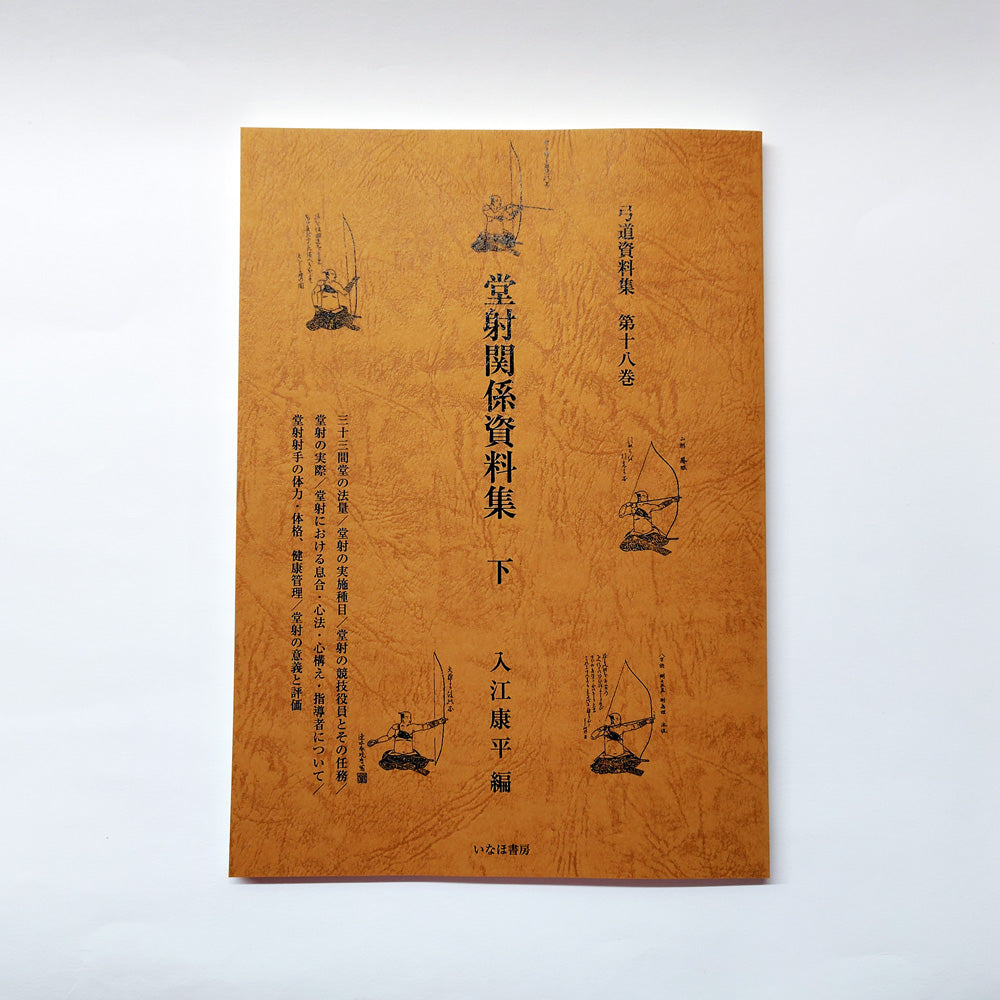 弓道資料集　第十八巻
堂射関係資料集　下
入江康平 編
三十三間堂の法量／堂射の実施種目／堂射の競技役員とその任務／
堂射の実際／堂射における息合・心法・心構え・指導者について／
堂射射手の体力・体格、健康管理／堂射の意義と評価
いなほ書房